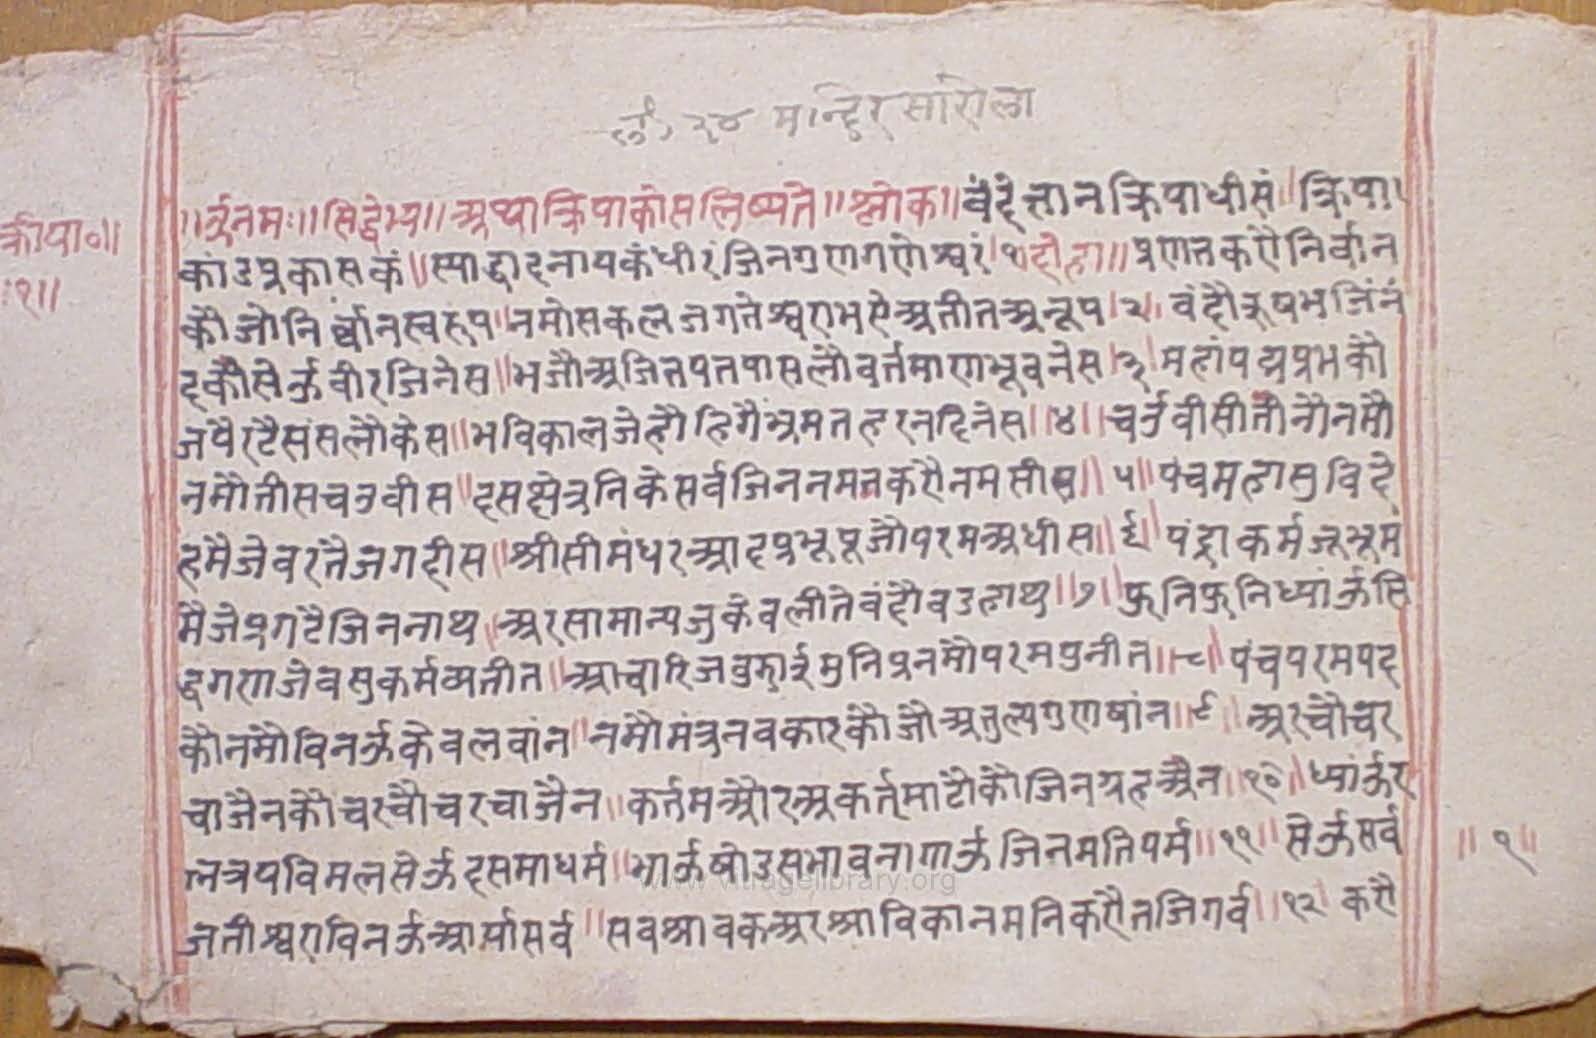 नं. २४ मान्दिर सारोला
॥ॐ नमः॥ सिद्धेभ्य॥ अथा क्रिपाकोस लिष्यते॥ श्लोक॥ वंदे ज्ञान क्रिपाधीसं॥ क्रिपा।
क्रीपा०॥
कांउ प्रकासकं॥ स्याद्वादनायकं धीरं जिनगुणगणेश्वरं।१ दोहा॥ प्रणत करौं निर्वान
।१॥
कौ जो निर्वानस्वरूप॥ नमो सकल जगतेश्वरा भऐ अतीत अनूप।२। वंदौ रूषभ जिनं
दकौ सेऊं वीर जिनेस॥ भजौ अजित पत पास लौ वर्तमाण भूवनेस।३। महां पद्मप्रभकौ
जपै रटै संसलौकेस॥ भविकाल जे होहिगै भ्रमत तहरन दिनेस॥४॥ चउवीसी तीनौ नमौ
नमौ तीस चउवीस॥ दस क्षेत्रनि के सर्व जिन नमन करौ नम सीस॥५॥ पंच महा सुविदे
हमै जे वरतै जगदीस॥ श्रीसीमंधर आद प्रभू पूजौ परम अधीस॥६॥ पंद्रा कर्मजू भूम
मै जे प्रगटै जिननाथ॥ अर सामान्य जु केवली ते वंदौ वउहाथ॥७॥ फुनि फुनि ध्यांऊ सि
द्धगण जे वसुकर्म व्यतीत॥ आचारिज वुझाई मुनि प्रनमौ परम पुनीत॥८॥ पंच परमपद
कौ नमौ विनऊ केवलवांन॥ नमौ मंत्र नवकारकौ जौ अतुल्य गुण षांन॥९॥ अर चौचर
चा जैनकौ चर चौचरचा जैन॥ कर्तम औरं अकर्तमा टौकौ जिनग्रह औन॥१०॥ ध्यांऊ र
लत्रय विमल सेऊ दसमा धर्म॥ भाऊ षोउसभावना गाऊ जिनमति पर्म॥११॥ सेऊ सर्व
॥१॥
जतीश्वरा विनऊ आर्या सर्व॥ सव श्रावक अर श्राविका नमनि करौ तजि गर्व॥१२। करौ
www.vitragelibrary.org